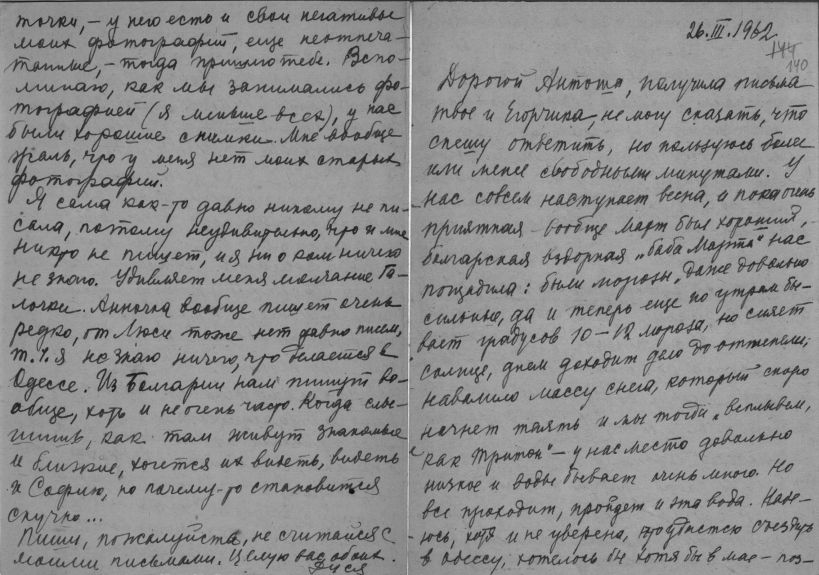 точки, – у него есть и свои негативы
моих фотографий, еще неотпеча-
танные, – тогда пришлю тебе. Вспо-
минаю, как мы занимались фо-
тографией (я меньше всех), у нас
были хорошие снимки. Мне вообще
жаль, что у меня нет моих старых
фотографий.
Я сама как-то давно никому не пи-
сала, поэтому неудивительно, что и мне
никто не пишет, и я ни о ком ничего
не знаю. Удивляет меня молчание Га-
лочки. Анночка вообще пишет очень
редко, от Люси тоже нет давно писем,
т.ч. я не знаю ничего, что делается в
Одессе. Из Болгарии нам пишут во-
обще, хоть и не очень часто. Когда слы-
шишь, как там живут знакомые
и близкие, хочется их видеть, видеть
и Софию, но почему-то становится
скучно...
Пиши, пожалуйста, не считайся с
моими письмами. Целую вас обоих.
Дуся
26.III.1962
144
140
Дорогой Антоша, получила письма
твое и Егорчика, не могу сказать, что
спешу ответить, но пользуюсь более
или менее свободными минутами. У
нас совсем наступает весна, и пока очень
приятная – вообще март был хороший, –
болгарская вздорная „баба Марта" нас
пощадила: были морозы, даже довольно
сильные, да и теперь еще по утрам бы-
вает градусов 10–12 мороза, но сияет
солнце, днем доходит дело до оттепели;
навалило массу снега, который скоро
начнет таять и мы тогда „всплывем,
как тритон" – у нас место довольно
низкое и воды бывает очень много. Но
все проходит, пройдет и эта вода. Наде-
юсь, хотя и не уверена, что удастся съездить
в Одессу, хотелось бы хотя бы в мае – поз-